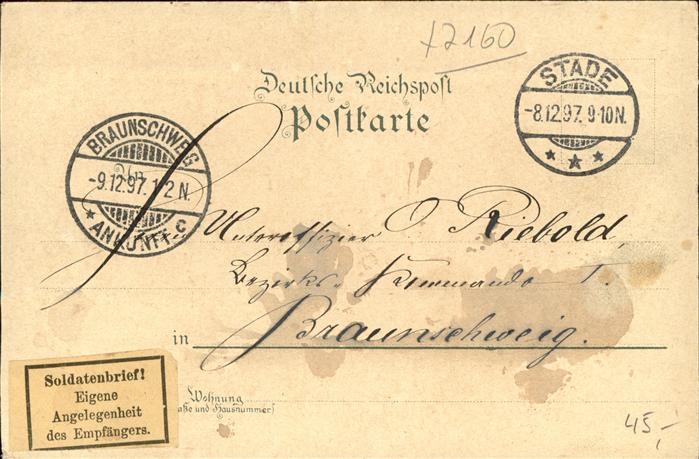 +2160
Deutsche Reichspost
Postkarte
STADE
-8.12.97. 9-10N.
BRAUNSCHWEIG
-9.12.97. 1-2 N.
ANKUNFT. C
An
Unteroffizier O Riebold,
Bezirks- Kommando I.
in Braunschweig.
Soldatenbrief!
Eigene
Angelegenheit
des Empfängers.
Wohnung
aße und Hausnummer)
45,-